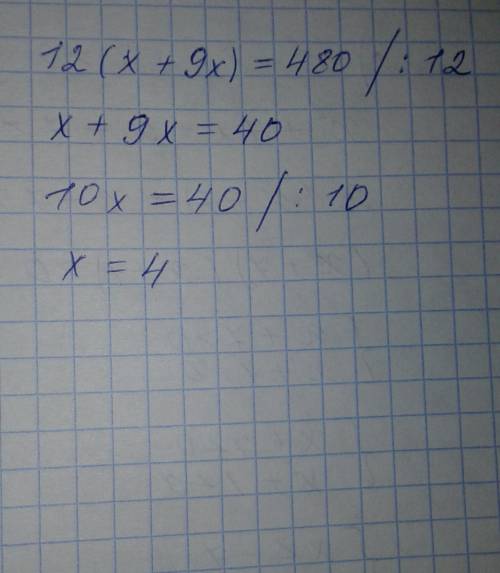 12(x + 9x) = 480 /: 12
x + 9x = 40
10x = 40 /: 10
x = 4